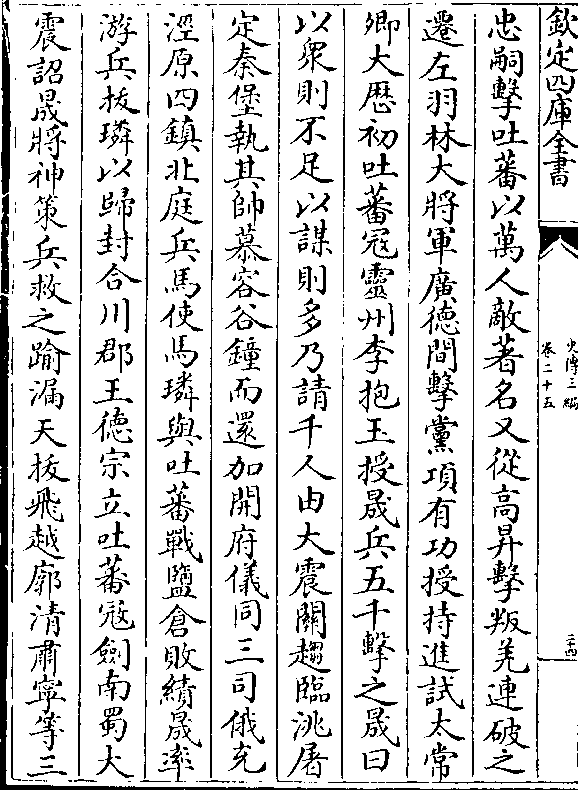 欽定四庫全書
史傳三編
卷二十五
二十四
忠嗣擊吐蕃以萬人敵著名又從高昇擊叛羌連破之
遷左羽林大將軍廣德間擊黨項有功授持進試太常
卿大厯初吐蕃冦靈州李抱玉授晟兵五千擊之晟曰
以衆則不足以謀則多乃請千人由大震關趨臨洮屠
定秦堡執其帥慕容谷鐘而還加開府儀同三司俄充
涇原四鎮北庭兵馬使馬璘與吐蕃戰鹽倉敗績晟率
游兵拔璘以歸封合川郡王德宗立吐蕃冦劍南蜀大
震詔晟將神策兵救之踰漏天拔飛越廓清肅寧等三